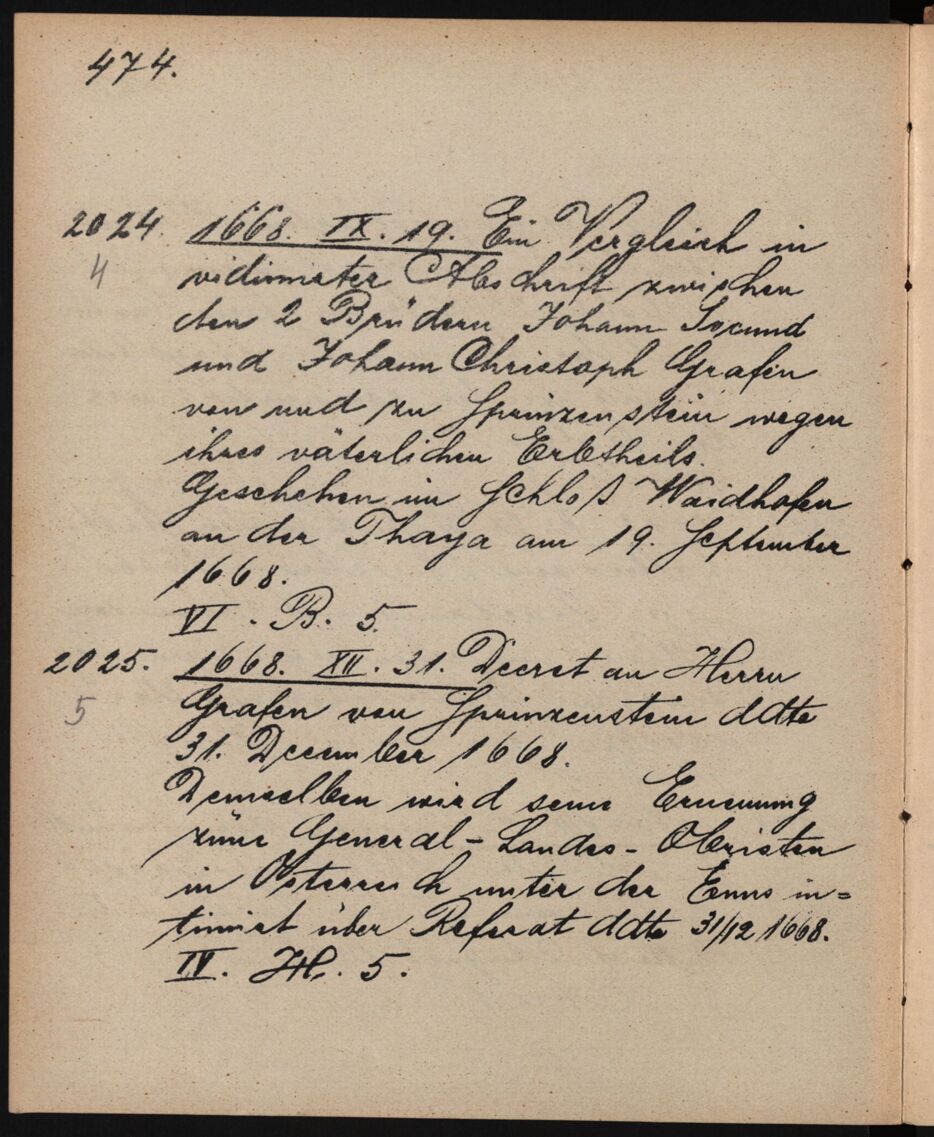 474.
2024. 1668. IX. 19. Ein Vergleich in
4 vidimirter Abschrift zwischen
den 2 Brüdern Johann
und Johann Christoph Grafen
von und zu Sprinzenstein wegen
ihres väterlichen Erbtheils.
Geschehen im Schloß Waidhofen
an der Thaya am 19. September
1668.
VI. B. 5.
2025. 1668. XII. 31. Decret an Herrn
5 Grafen von Sprinzenstein ddto
31. December 1668.
Demselben wird seine Ernennung
zum General-Landes-Obristen
in Österreich unter der Enns in=
timirt über Referat ddto 31/12 1668.
IV. H. 5.